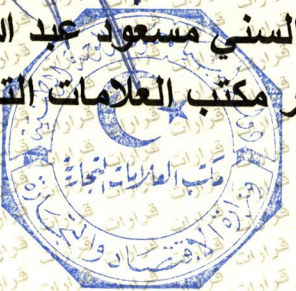 السني مسعود عبد ال
مكتب العلامات الت
مكتب العلامات التجارية
وزارة الاقتصاد والتجارة
قرارات